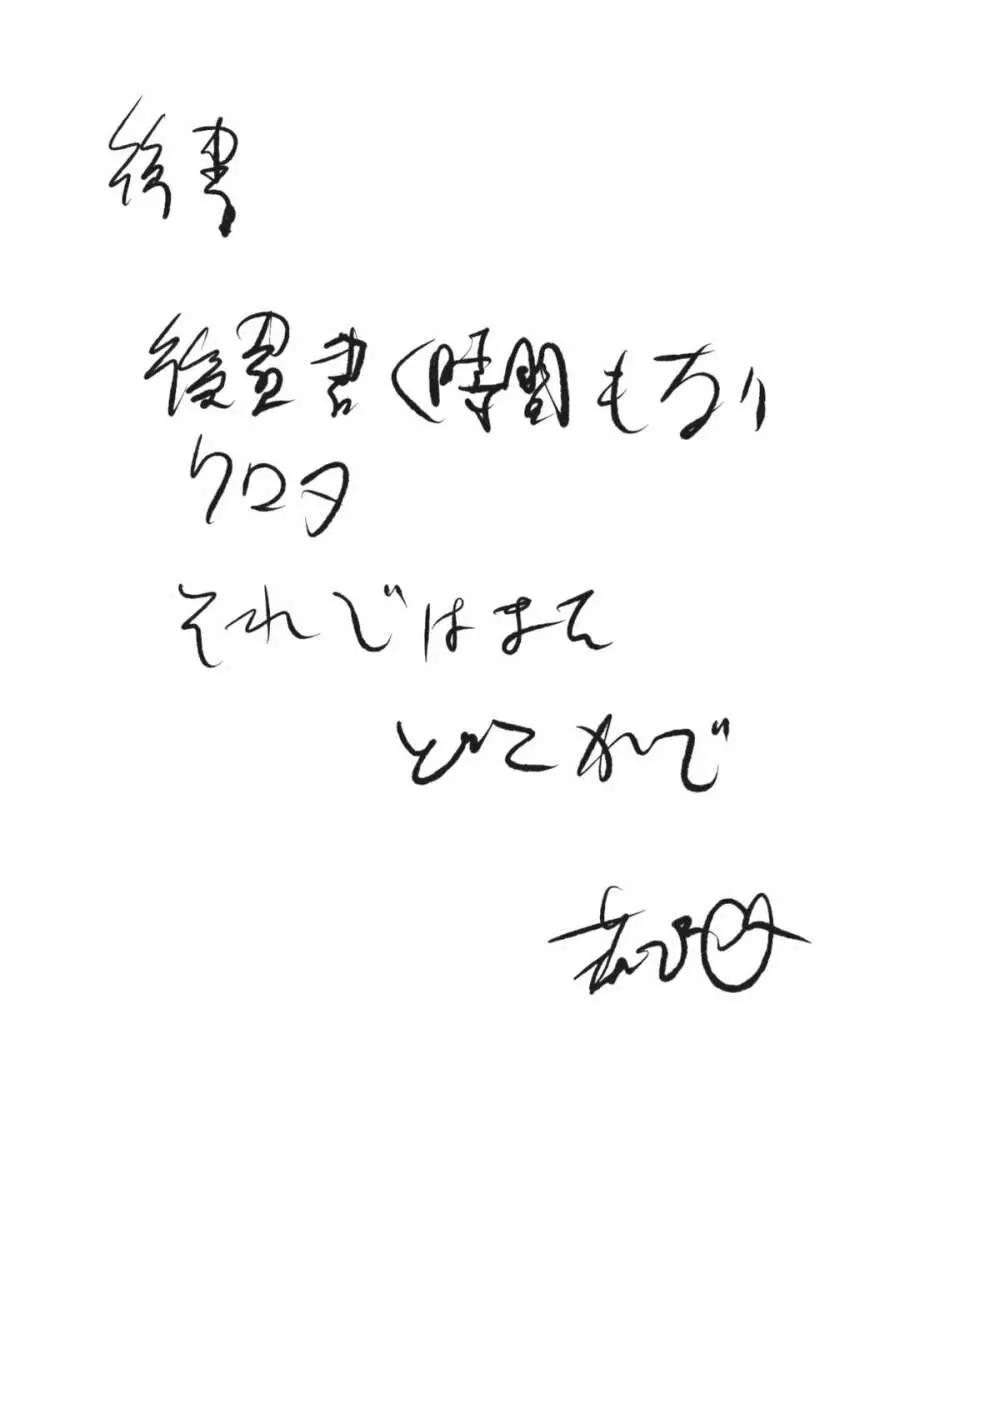 後書
後書書く時間もない
クロタ
それではまた
どこかで